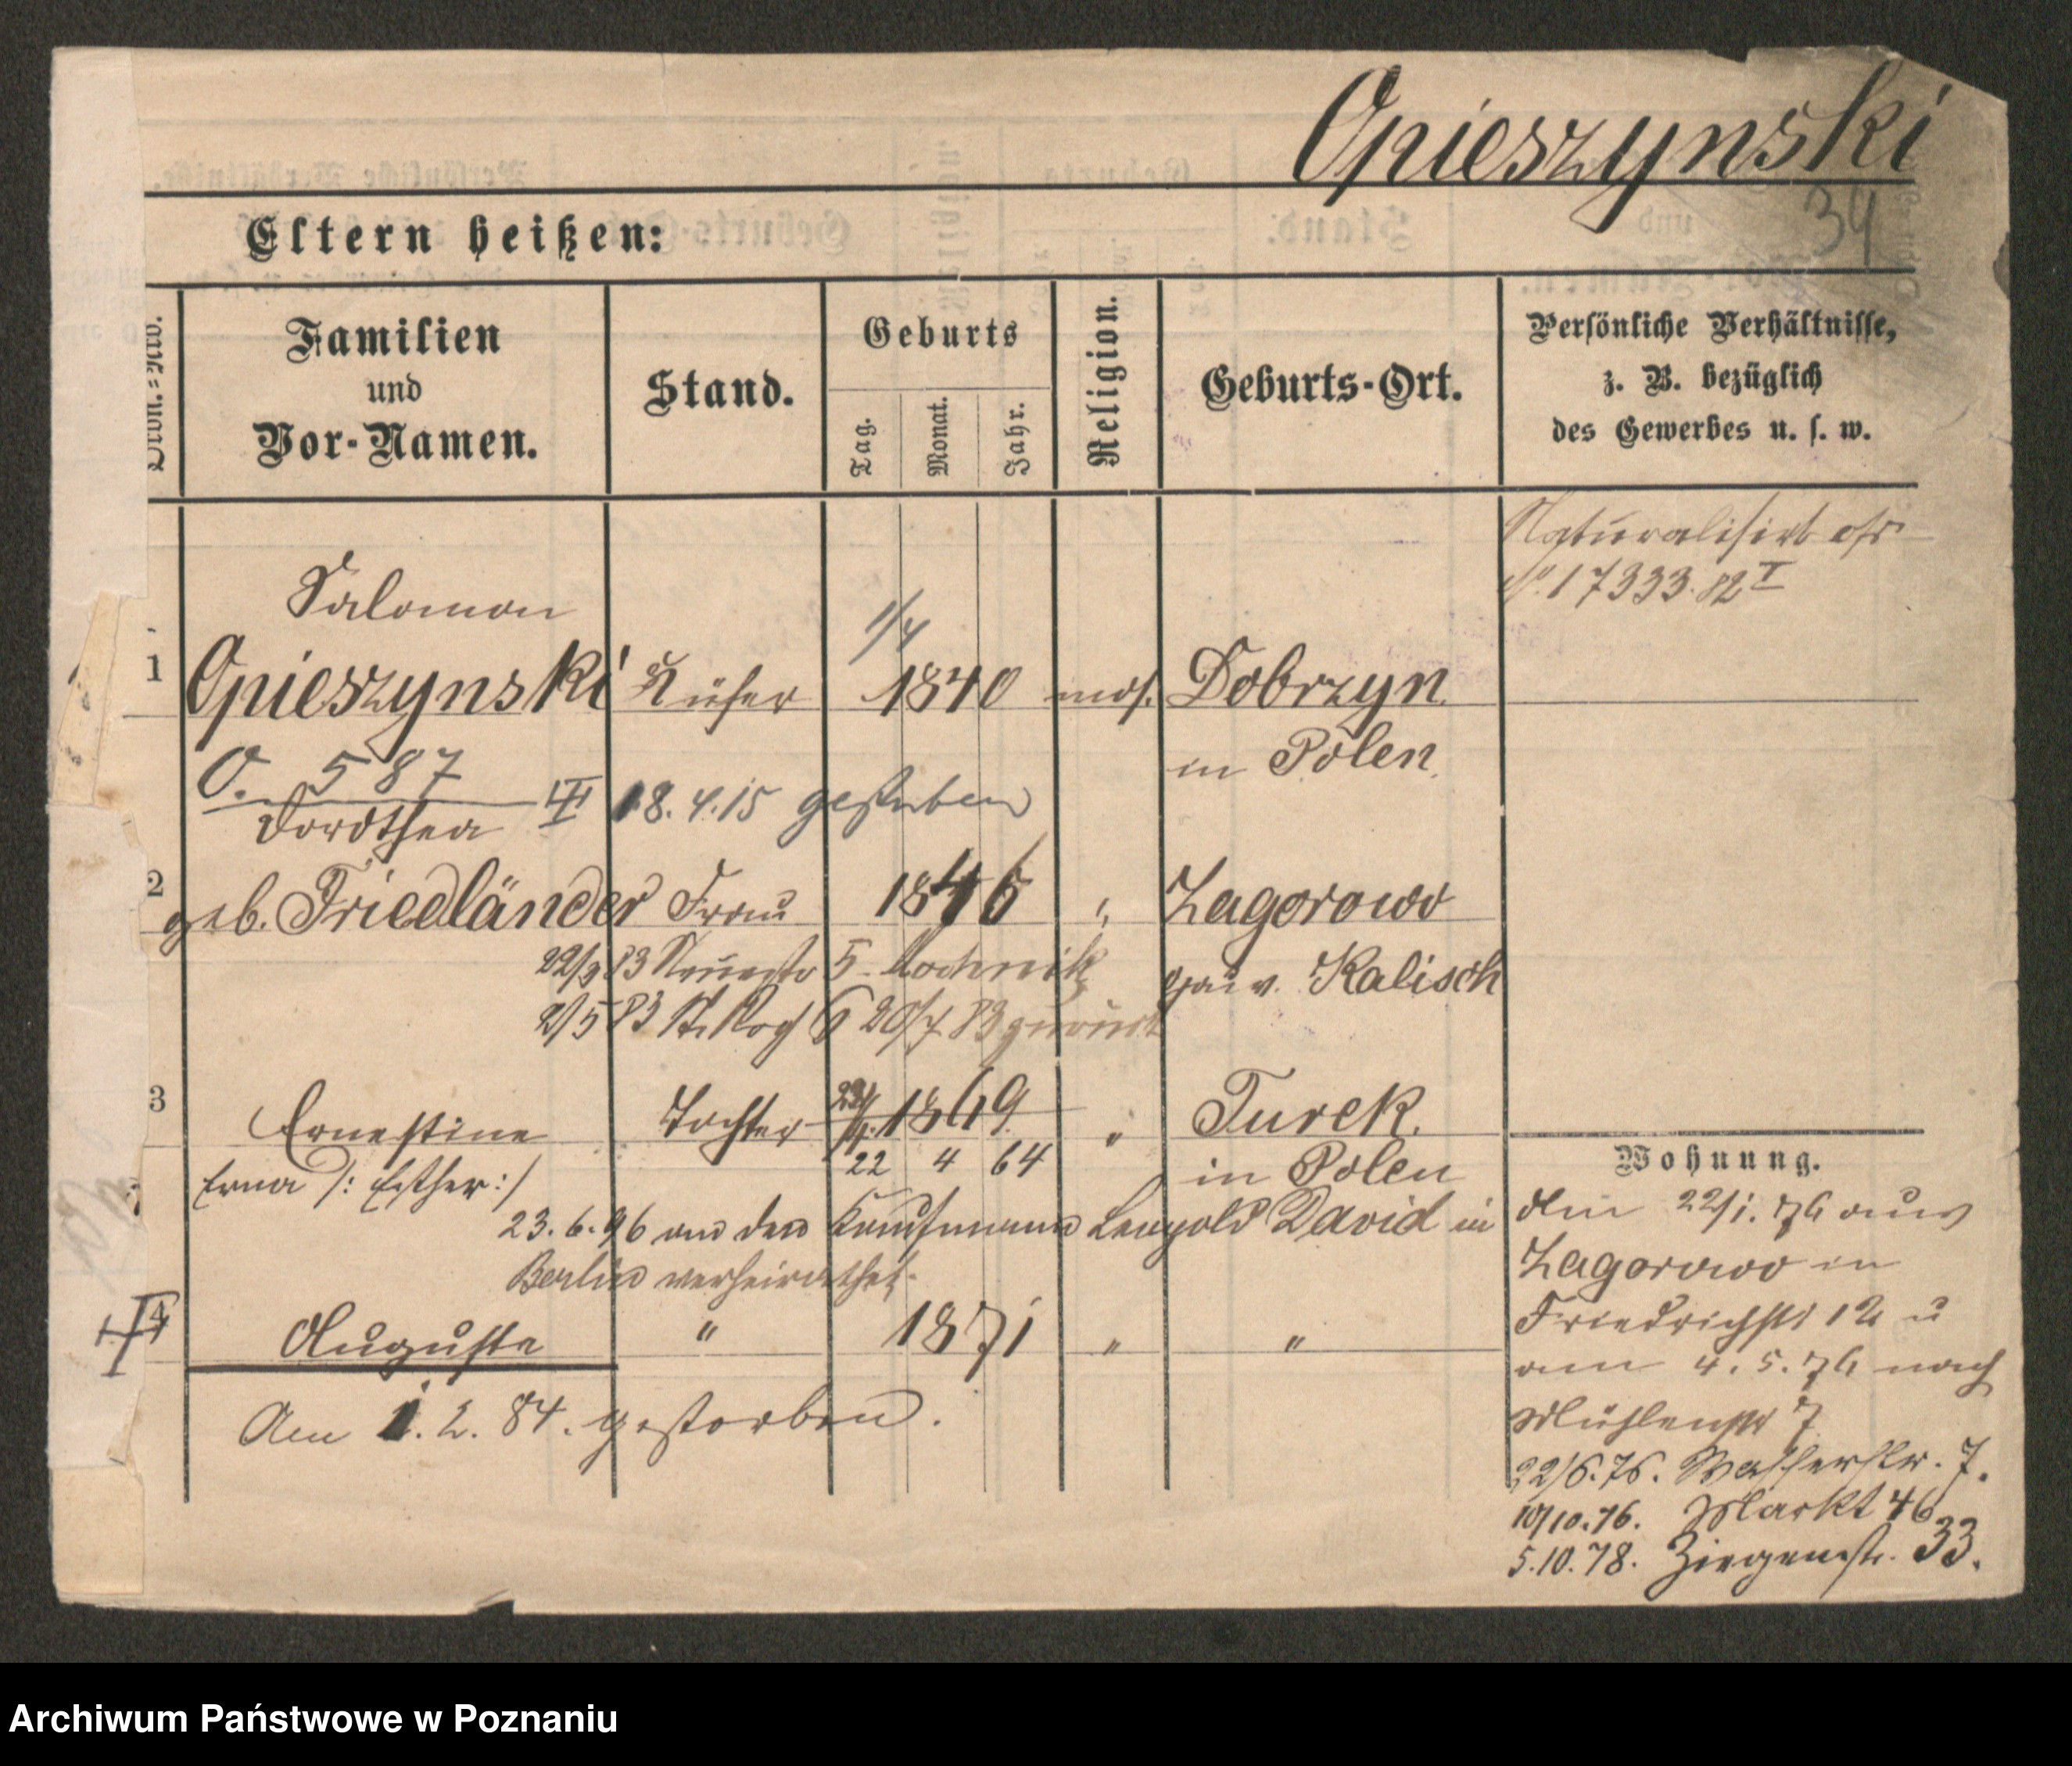 Opieszynski
39
Eltern heißen:
Ordn.=Nro.
Familien
und
Vor-Namen.
Stand.
Geburts
Tag.
Monat.
Jahr.
Religion.
Geburts-Ort.
Persönliche Verhältnisse,
z. B. bezüglich
des Gewerbes u. s. w.
Naturalisirt
No 17333.82 I
Salomon
1/4
1 Opieszynski Küfer 1840 mos. Dobrzyn
in Polen
O. 587
Dorothea III 18.4.15 gestorben
2 geb. Friedländer Frau 1846 " Zagorowo
22/3 83 5
Kalisch
2/5 83 6 20/7 83 zurück
3 Ernestine Tochter 1869 " Turek
22 4 64 in Polen
Erna /: Esther :/
23.6.96 an den Kaufmann Leopold David in
Berlin verheirathet.
4 Auguste " 1871 " "
Am 1.2.84. gestorben.
Wohnung.
Am 22/1. 76 aus
Zagorowo in
Friedrichstr 12 u
am 4.5.76 nach
Mühlenstr 7
22/6.76. Wasserstr. 7.
10/10.76. Markt 46
5.10.78. Ziegenstr. 33.
Archiwum Państwowe w Poznaniu